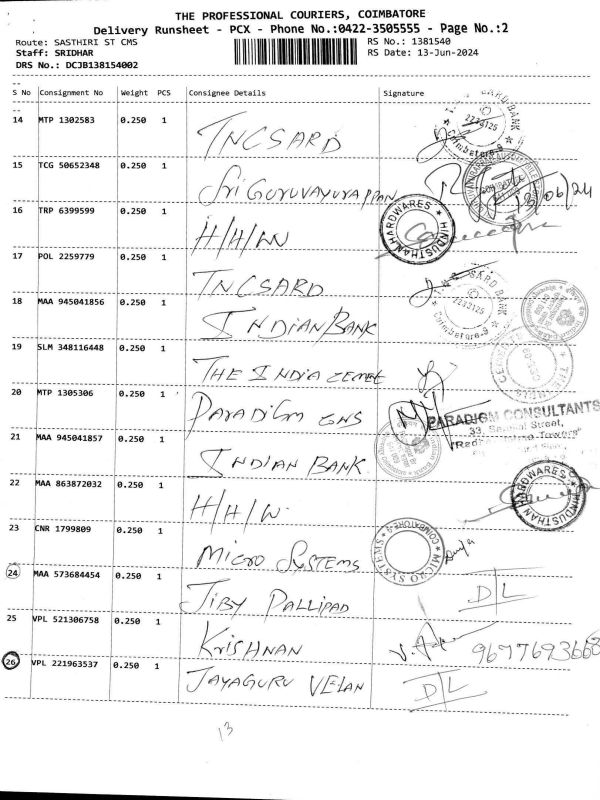 THE PROFESSIONAL COURIERS, COIMBATORE
Delivery Runsheet - PCX - Phone No.:0422-3505555 - Page No.:2
Route: SASTHIRI ST CMS
RS No.: 1381540
Staff: SRIDHAR
RS Date: 13-Jun-2024
DRS No.: DCJB138154002
S No Consignment No Weight PCS Consignee Details Signature
14 MTP 1302583 0.250 1 TNCSARD
SARD BANK 2233125 Coimbatore-9
15 TCG 50652348 0.250 1 Sri GURUVAYURAPPAN 13/06/24
16 TRP 6399599 0.250 1 H/H/W
HINDUSTHAN HARDWARES
17 POL 2259779 0.250 1 TNCSARD
SARD BANK 2233125 Coimbatore-9
18 MAA 945041856 0.250 1 INDIAN BANK
19 SLM 348116448 0.250 1 THE INDIA CEMET
20 MTP 1305306 0.250 1 PARADIGM
PARADIGM CONSULTANTS
33, Street,
Towers"
21 MAA 945041857 0.250 1 INDIAN BANK
22 MAA 863872032 0.250 1 H/H/W
HINDUSTHAN HARDWARES
23 CNR 1799809 0.250 1 MICRO SYSTEMS
MICRO SYSTEMS COIMBATORE
24 MAA 573684454 0.250 1 JIBY PALLIPAD D/L
25 VPL 521306758 0.250 1 KRISHNAN 9677693668
26 VPL 221963537 0.250 1 JAYAGURU VELAN D/L
13